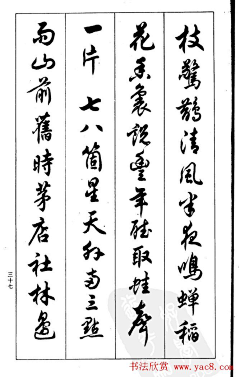 枝驚鵲清風半夜鳴蟬稻
花香裏說豐年聽取蛙聲
一片 七八箇星天外兩三點
雨山前舊時茅店社林邊
三十七
书法欣赏 www.yac8.com